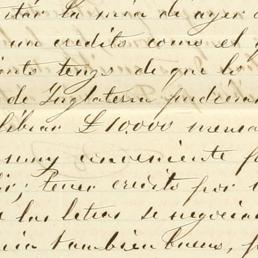 itar la mia de ayer
un credito como el
into tengo de que lo
de Inglaterra pudiera
librar £10000 mensu
muy conveniente p
; tener credito por
las letras se negocia
ria tambien bueno, p